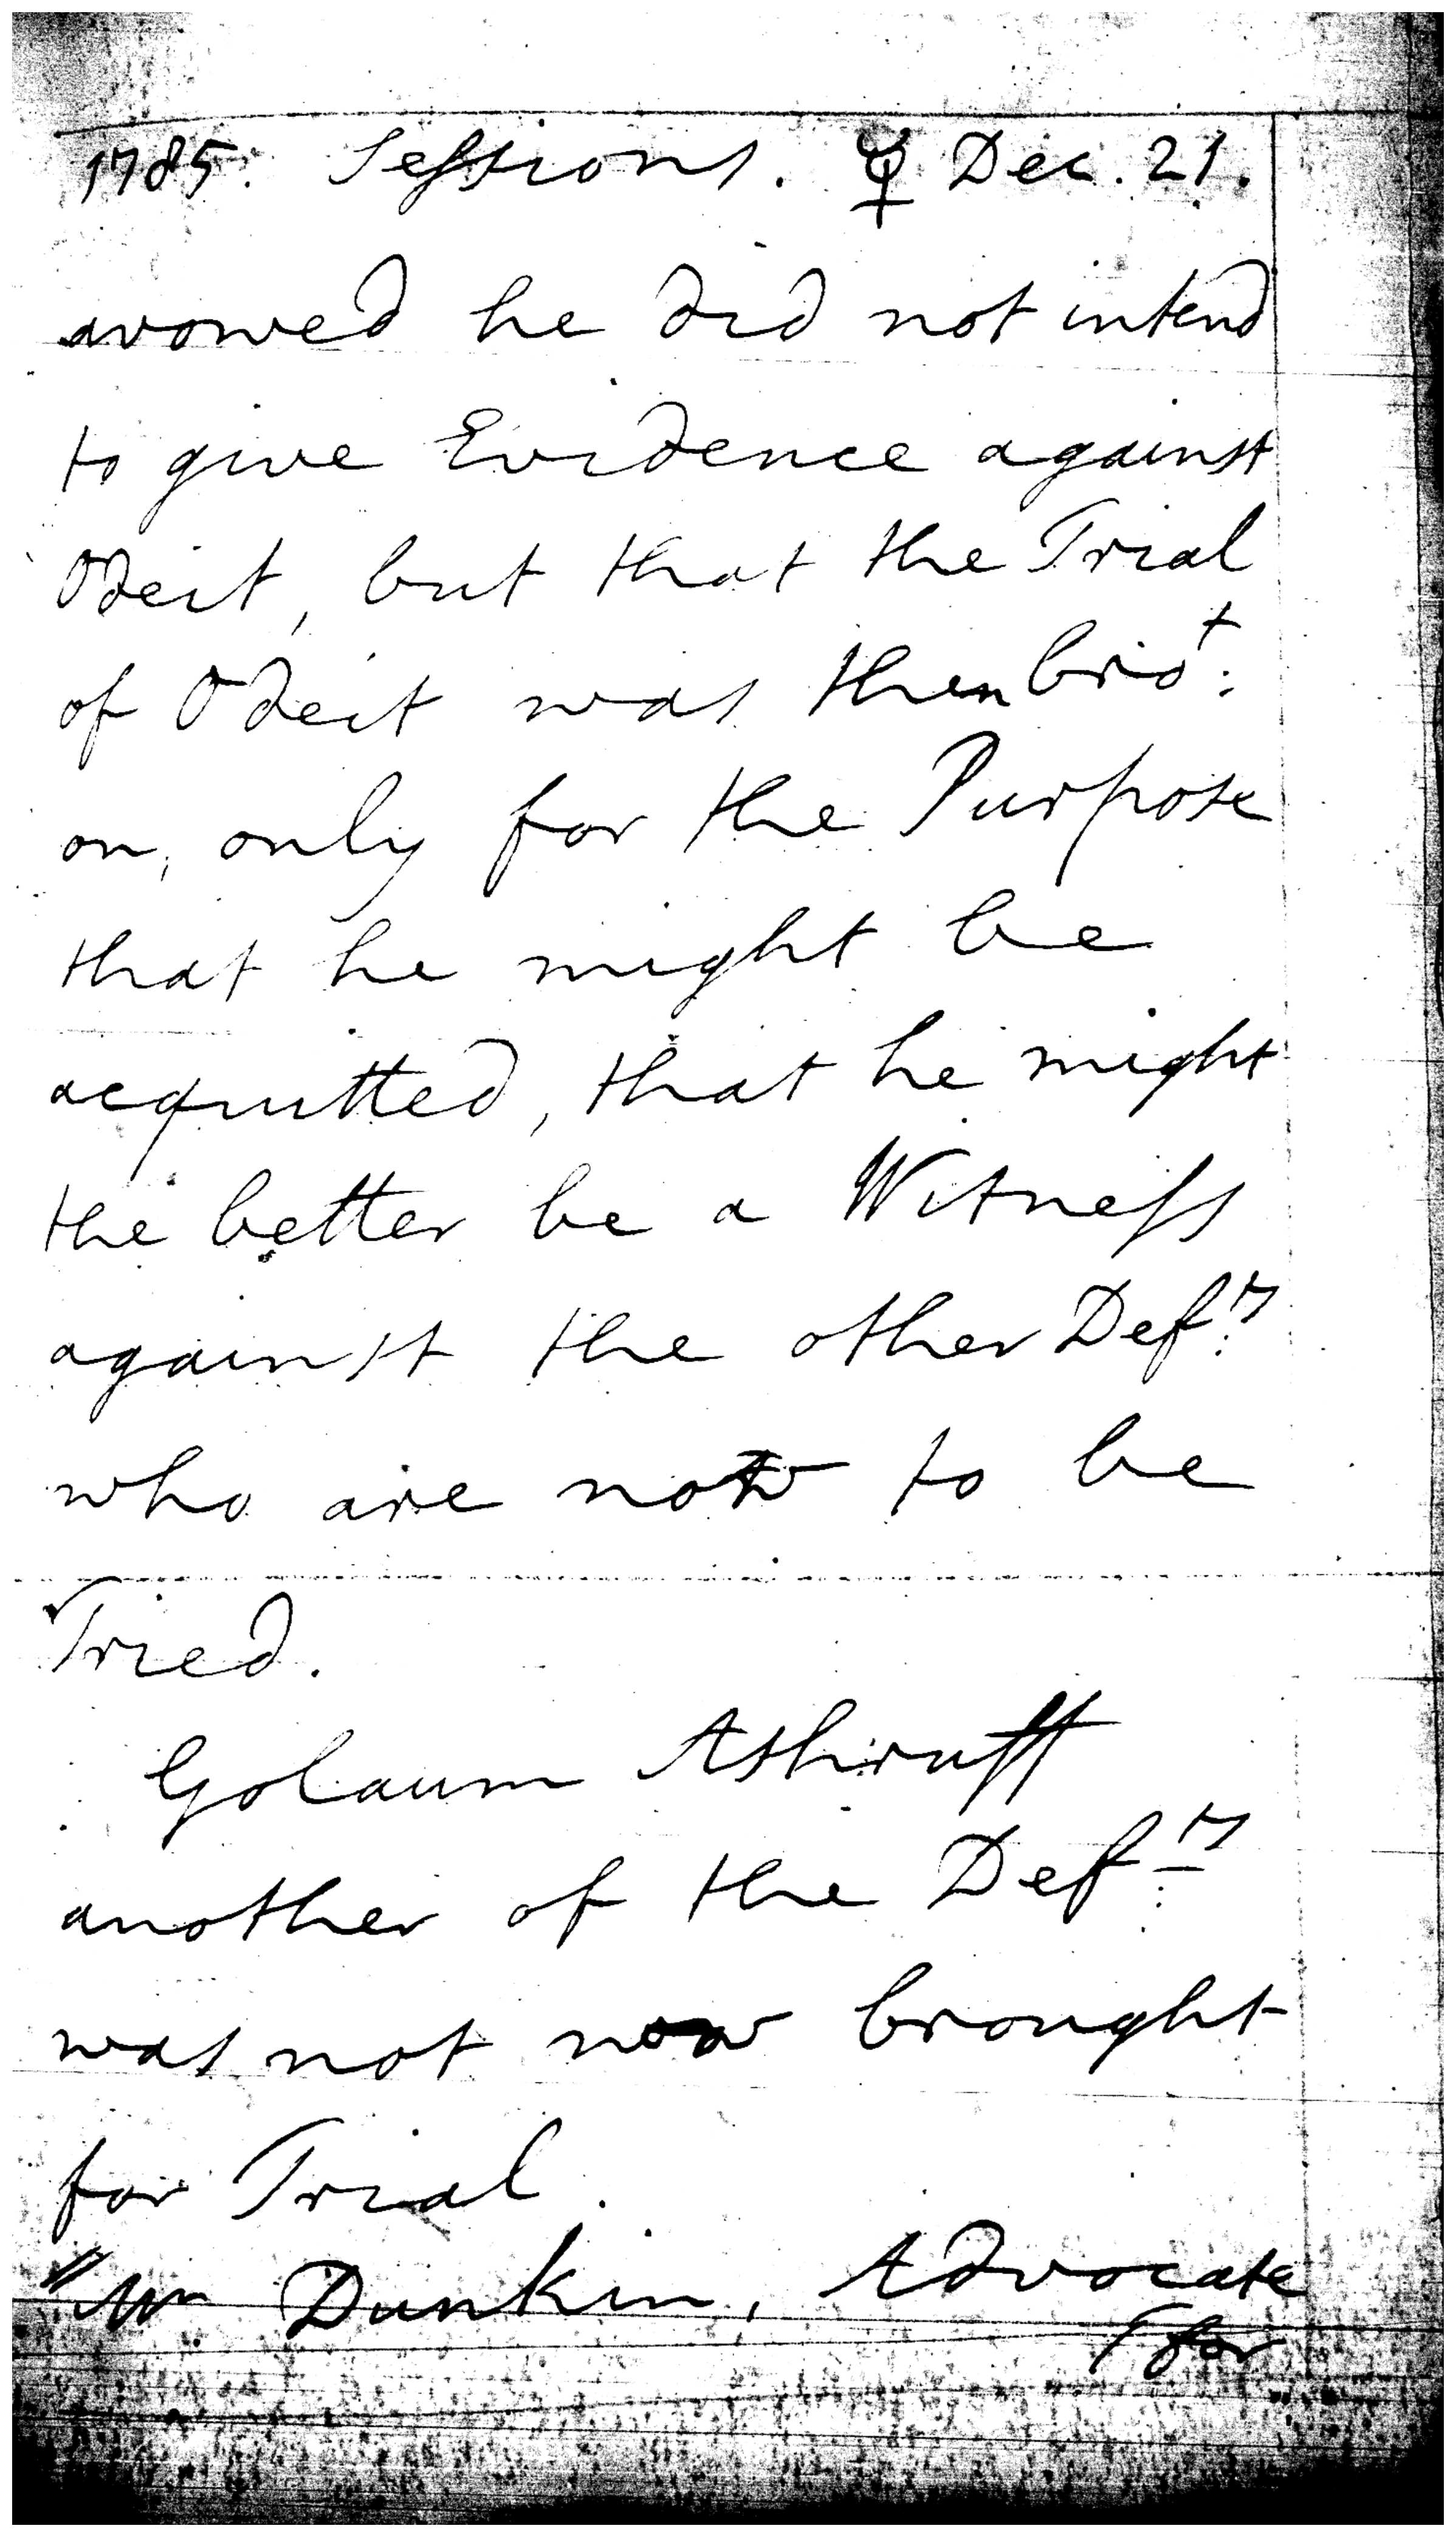 1785. Sessions. ☿ Dec. 21.
avowed he did not intend
to give Evidence against
Odeit, but that the Trial
of Odeit was then bro^t:
on, only for the Purpose
that he might be
acquitted, that he might
the better be a Witness
against the other Def^ts
who are now to be
Tried.
Golaum Ashruff
another of the Def^ts
was not now brought
for Trial.
"Mr Dunkin, Advocate
for